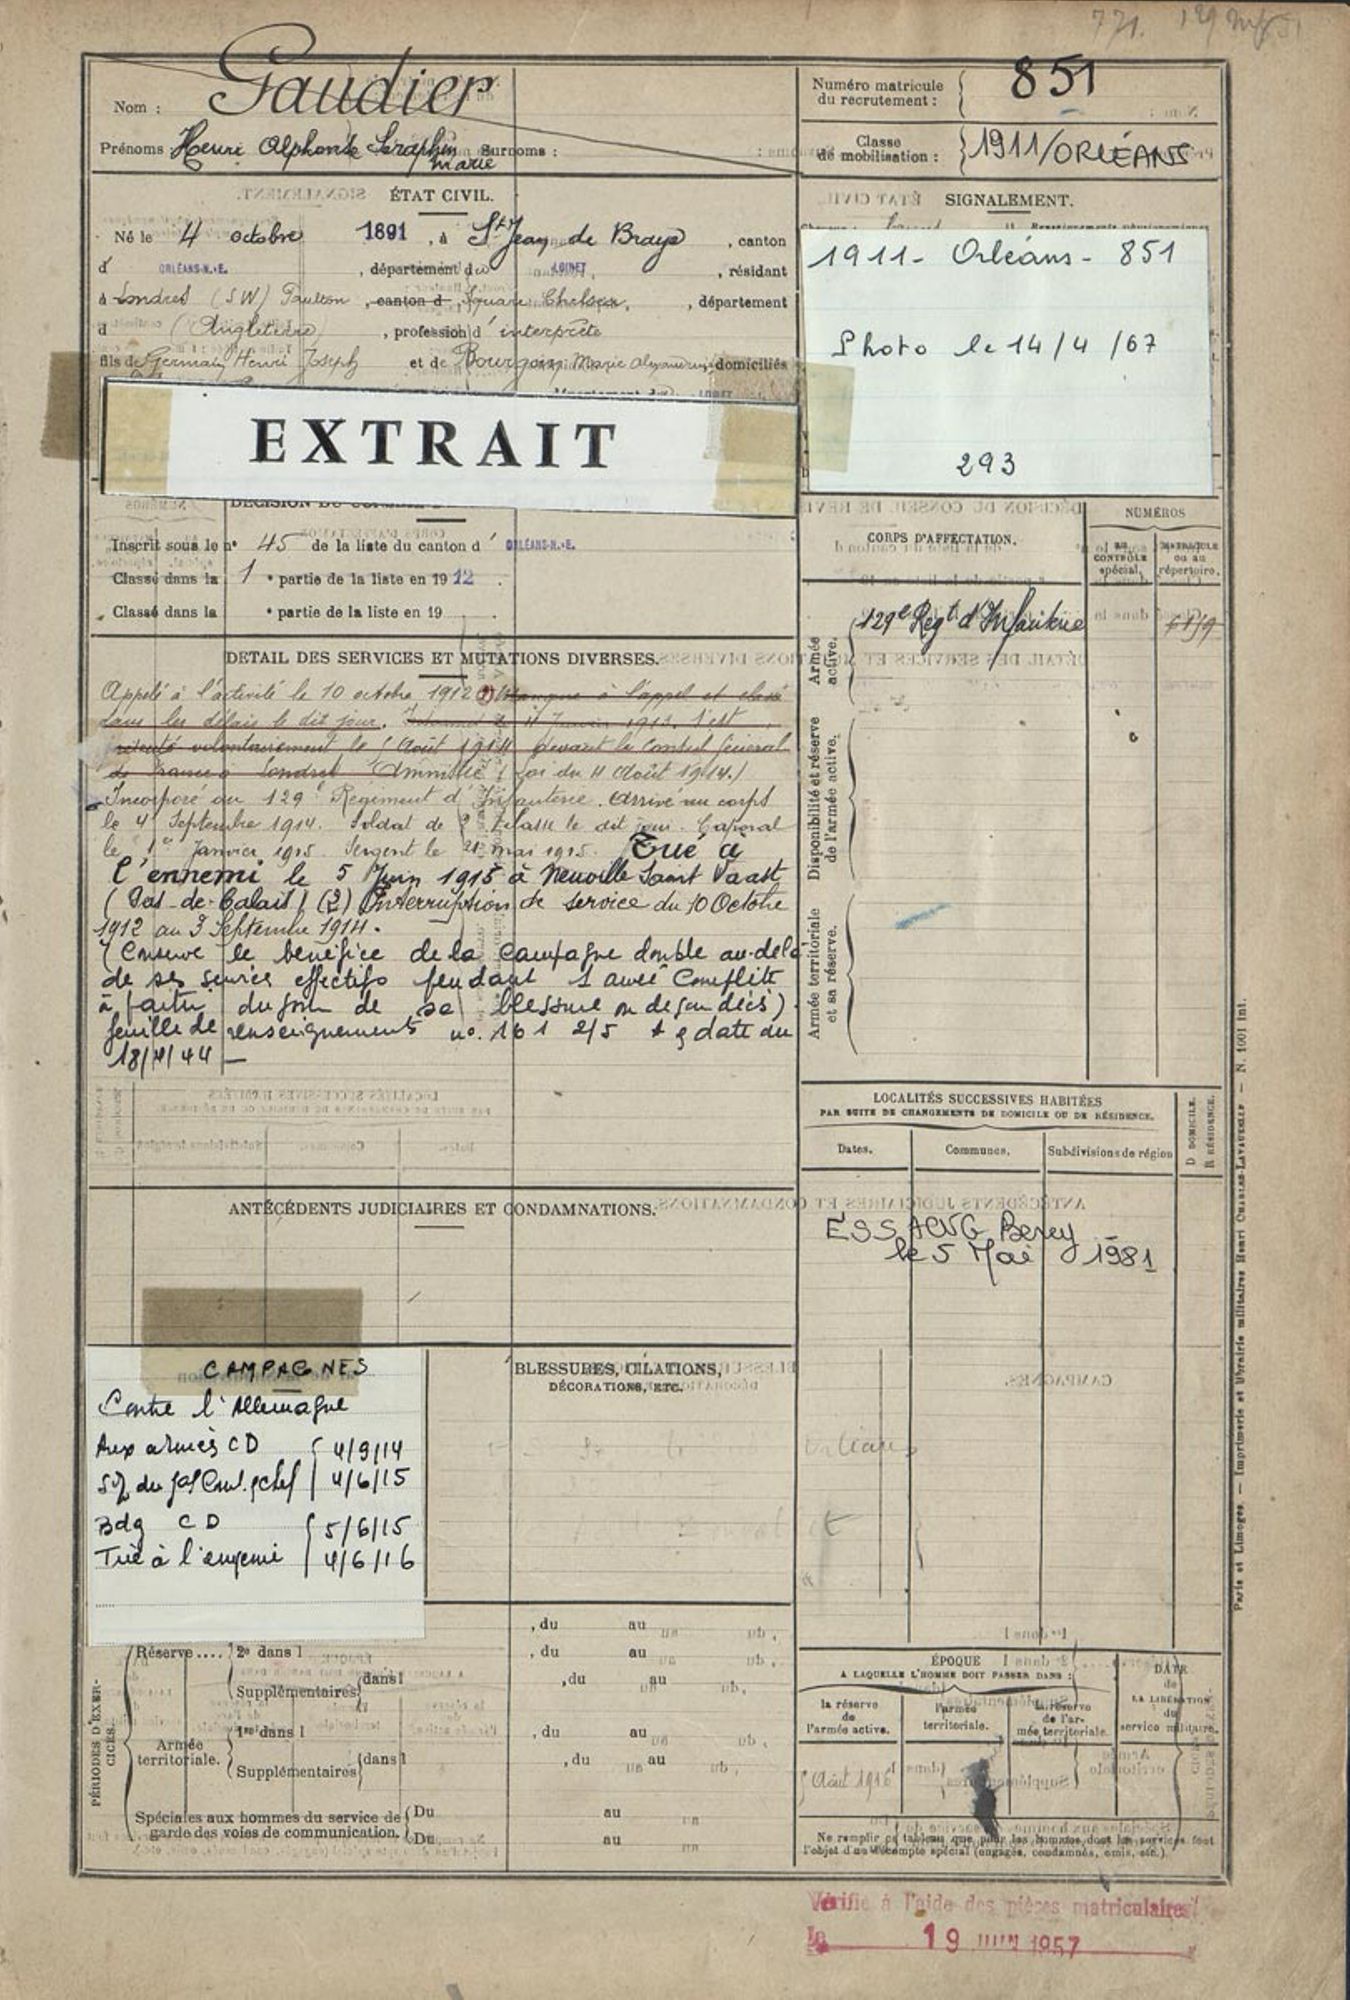 Nom : Gaudier
Prénoms : Henri Alphonse Seraphin Marie Surnoms :
Numéro matricule du recrutement : 851
Classe de mobilisation : 1911/ORLÉANS
ÉTAT CIVIL.
Né le 4 octobre 1891, à St Jean de Braye, canton
d' ORLÉANS-N.-E., département du LOIRET, résidant
à Londres (SW) Paulton, canton d Square Chelsea, département
d (Angleterre), profession d'interprète
fils de Germain Henri Joseph et de Bourgoin Marie domiciliés
EXTRAIT
SIGNALEMENT.
1911 - Orléans - 851
Photo le 14/4/67
293
Inscrit sous le n° 45 de la liste du canton d' ORLÉANS-N.-E.
Classé dans la 1 e partie de la liste en 1912.
Classé dans la e partie de la liste en 19
DÉTAIL DES SERVICES ET MUTATIONS DIVERSES.
Appelé à l'activité le 10 octobre 1912 Manque à l'appel et
dans les délais le dit jour. S'est
volontairement le Août 1914 devant le Consul Général
de France à Londres Amnistié (Loi du Août 1914.)
Incorporé au 129e Régiment d'Infanterie. Arrivé au corps
le 4 Septembre 1914. Soldat de 2e classe le dit jour. Caporal
le 1er Janvier 1915. Sergent le 21 mai 1915. Tué à
l'ennemi le 5 Juin 1915 à Neuville Saint Vaast
(Pas-de-Calais) (2) Interruption de service du 10 Octobre
1912 au 3 Septembre 1914.
(Conserve le bénéfice de la Campagne double au-delà
de ses services effectifs pendant 1 année Complète
à partir du jour de sa blessure ou de son décès)
feuille de renseignements no. 161 2/5 date du
18/4/44 —
CORPS D'AFFECTATION.
NUMÉROS
AU CONTRÔLE spécial.
MATRICULE ou au répertoire.
Armée active.
129e Régt d'Infanterie
Disponibilité et réserve de l'armée active.
Armée territoriale et sa réserve.
LOCALITÉS SUCCESSIVES HABITÉES
PAR SUITE DE CHANGEMENTS DE DOMICILE OU DE RÉSIDENCE.
Dates. Communes. Subdivisions de région
D DOMICILE.
R RÉSIDENCE.
Bercy
le 5 Mai 1981
ANTÉCÉDENTS JUDICIAIRES ET CONDAMNATIONS.
CAMPAGNES
Contre l'Allemagne
Aux armées CD 4/9/14
4/6/15
Bdg CD 5/6/15
Tué à l'ennemi 4/6/16
BLESSURES, CITATIONS,
DÉCORATIONS, ETC.
PÉRIODES D'EXERCICES.
Réserve.... 2e dans l , du au
, du au
Supplémentaires dans l , du au
Armée territoriale. 1re dans l , du au
Supplémentaires dans l , du au
Spéciales aux hommes du service de garde des voies de communication. Du au
Du au
ÉPOQUE
A LAQUELLE L'HOMME DOIT PASSER DANS :
la réserve de l'armée active.
l'armée territoriale.
la réserve de l'armée territoriale.
DATE de LA LIBÉRATION du service militaire.
Août 1916
Ne remplir ce tableau que pour les hommes dont les services font
l'objet d'un décompte spécial (engagés, condamnés, omis, etc.).
Vérifié à l'aide des pièces matriculaires
Le 19 JUIN 1957
Paris et Limoges. — Imprimerie et librairie militaires Henri CHARLES-LAVAUZELLE — N. 1001 int.